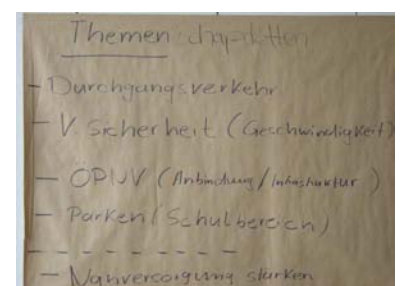 Themen
- Durchgangsverkehr
- V. Sicherheit (Geschwindigkeit)
- ÖPNV (Anbindung / Infrastruktur)
- Parken (Schulbereich)
- - - - - - - - -
- Nahversorgung stärken